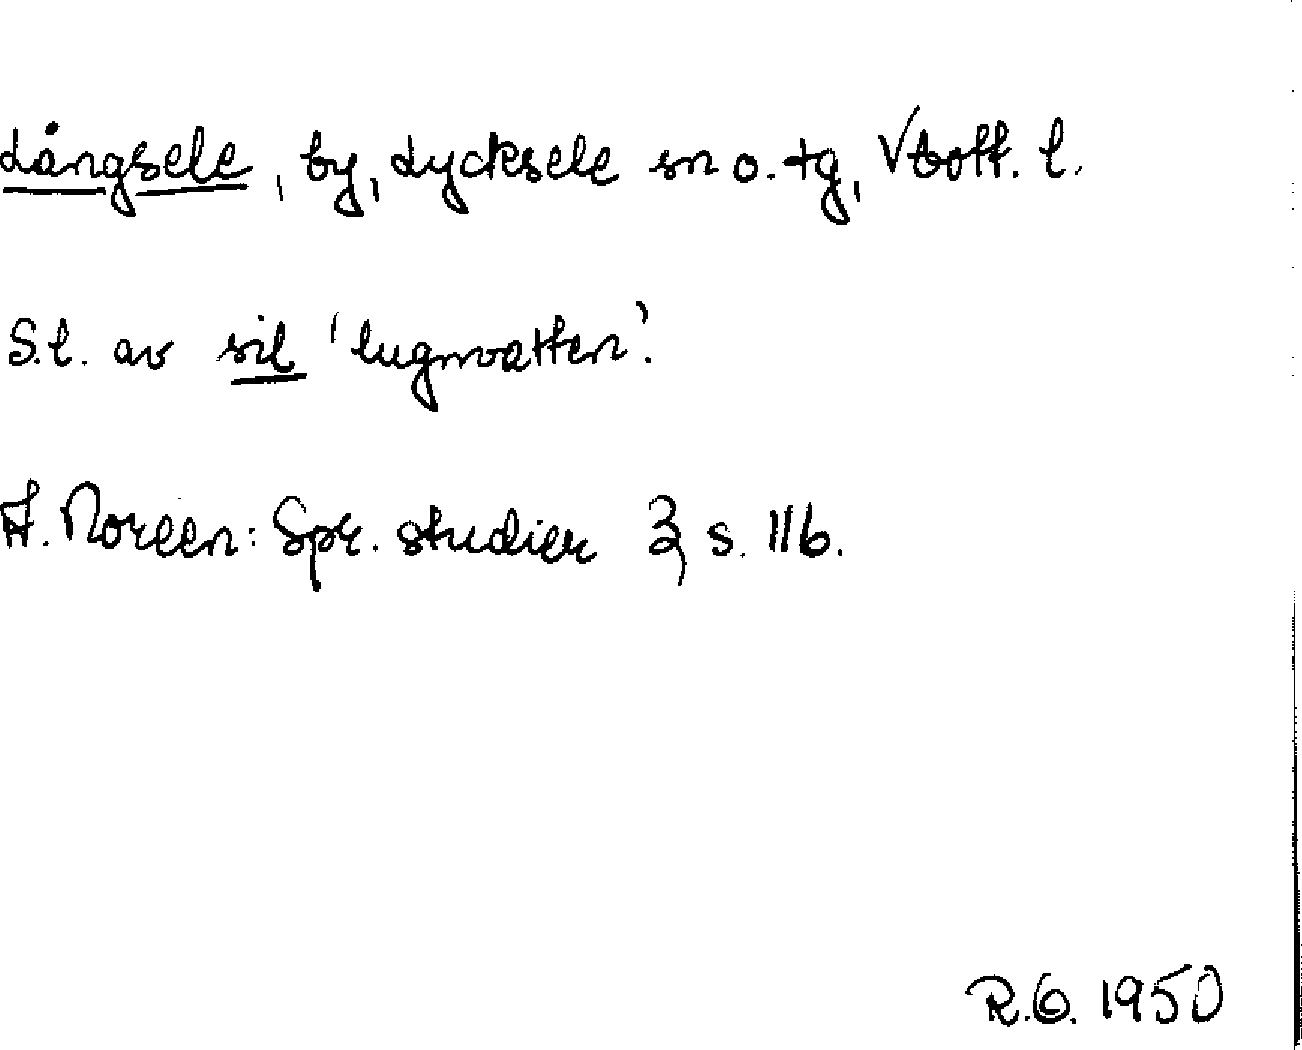 Långsele, by, Lycksele sn o. tg, Vbott. l.
S.l. av sil 'lugnvatten'.
A. Noreen: Spr. studier 3, s. 116.
R.G. 1950